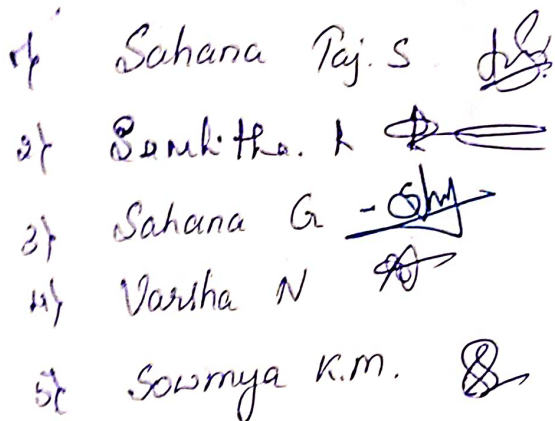 1) Sahana Taj. S
2) Sanhitha. R
3) Sahana G
4) Varsha N
5) Sowmya K.M.